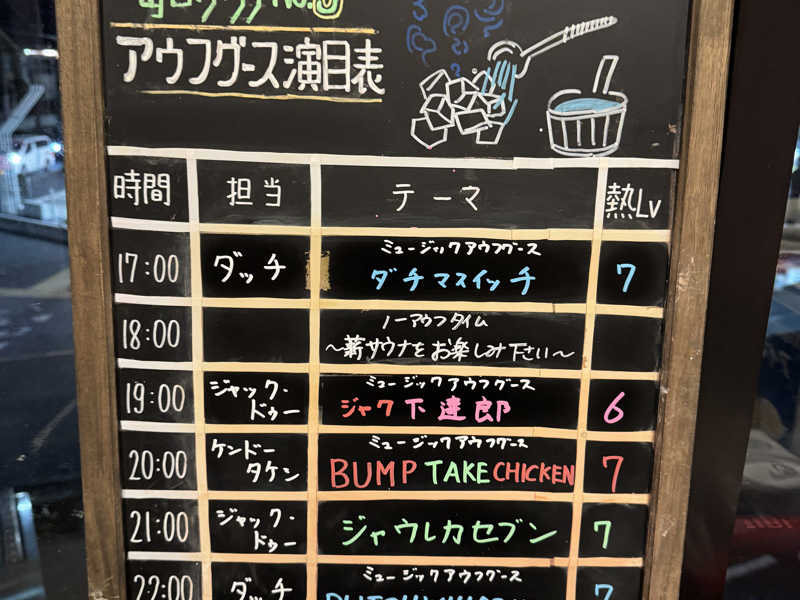 アウフグース演目表
時間 担当 テーマ 熱Lv
ミュージックアウフグース
17:00 ダッチ ダチマスイッチ 7
18:00 ノーアウフタイム
〜薪サウナをお楽しみ下さい〜
ミュージックアウフグース
19:00 ジャック・ドゥー ジャク下達郎 6
ミュージックアウフグース
20:00 ケンドータケン BUMP TAKE CHICKEN 7
21:00 ジャック・ドゥー ジャウレカセブン 7
ミュージックアウフグース
22:00 ダッチ